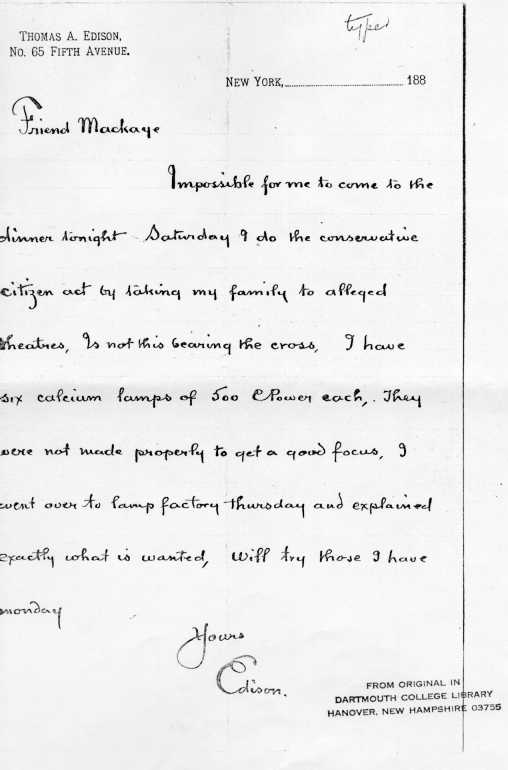 typed
THOMAS A. EDISON,
NO. 65 FIFTH AVENUE.
NEW YORK, 188
Friend Mackaye
Impossible for me to come to the
dinner tonight Saturday I do the conservative
citizen act by taking my family to alleged
theatres, Is not this bearing the cross, I have
six calcium lamps of 500 CPower each,. They
were not made properly to get a good focus, I
went over to lamp factory thursday and explained
exactly what is wanted, Will try those I have
monday
Yours
Edison.
FROM ORIGINAL IN
DARTMOUTH COLLEGE LIBRARY
HANOVER, NEW HAMPSHIRE 03755